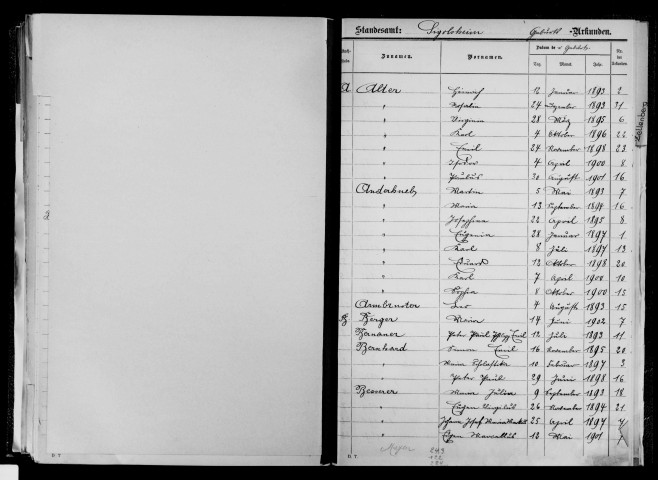 Standesamt: Sigolsheim Geburts-Urkunden.
Zunamen. Vornamen. Datum der Geburt Nr. der Urkunden.
Tag. Monat. Jahr.
A Alter Heinrich 12 Januar 1893 2
" Rosalia 24 Dezember 1893 31
" Virginia 28 März 1895 6
" Karl 4 Oktober 1896 22
" Emil 24 November 1898 23
" Isidor 4 April 1900 8
" Paulus 30 August 1901 16
Andahneb Martin 5 Mai 1893 7
" Maria 13 September 1894 16
" Josephina 22 April 1895 8
" Eugenia 28 Januar 1897 1
" Karl 8 Juli 1897 13
" Eduard 12 Oktober 1898 20
" Karl 7 April 1900 10
" Sophia 8 Oktober 1900 15
Armbruster Leo 4 August 1893 15
B Berger Maria 14 Juni 1902 7
Bernauer Peter Paul Emil 12 Juli 1893 11
Bernhard Simon Emil 16 November 1895 20
" Maria Scholastika 10 Februar 1897 3
" Peter Paul 29 Juni 1898 16
Besserer Maria Julia 9 September 1893 18
" Eugen Virgilius 26 November 1894 21
" Johann Josef 25 April 1897 7
" Eugen Marcellus 12 Mai 1901 7
Zellenberg
D. T.
D. T.
Meyer